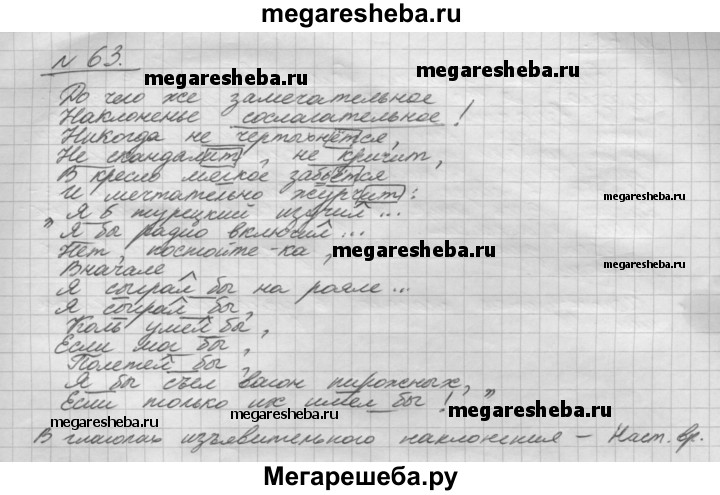 megaresheba.ru
N 63.
megaresheba.ru
До чего же замечательное
Наклоненье сослагательное!
Никогда не чертыхнётся,
Не скандалит, не кричит,
В кресло мягкое забьётся
И мечтательно журчит:
megaresheba.ru
„Я б турецкий изучил...
Я бы радио включил...
Нет, постойте-ка,
megaresheba.ru
Вначале
megaresheba.ru
Я сыграл бы на рояле...
Я сыграл бы,
Коль умел бы,
Если мог бы,
Полетел бы,
Я бы съел вагон пирожных,
Если только их имел бы!"
megaresheba.ru
megaresheba.ru
megaresheba.ru
В глаголах изъявительного наклонения – Наст. вр.
Мегарешеба.ру